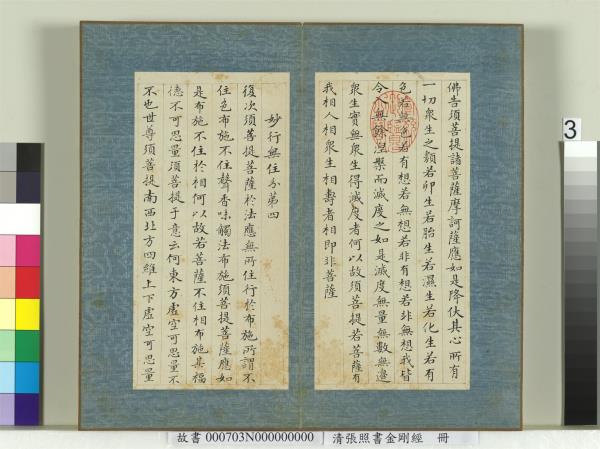 佛告須菩提諸菩薩摩訶薩應如是降伏其心所有
一切衆生之類若卵生若胎生若濕生若化生若有
色若無色若有想若無想若非有想若非無想我皆
令入無餘涅槃而滅度之如是滅度無量無數無邊
衆生實無衆生得滅度者何以故須菩提若菩薩有
我相人相衆生相壽者相即非菩薩
妙行無住分第四
復次須菩提菩薩於法應無所住行於布施所謂不
住色布施不住聲香味觸法布施須菩提菩薩應如
是布施不住於相何以故若菩薩不住相布施其福
德不可思量須菩提于意云何東方虛空可思量不
不也世尊須菩提南西北方四維上下虛空可思量
3
故書 000703N000000000 清張照書金剛經 冊